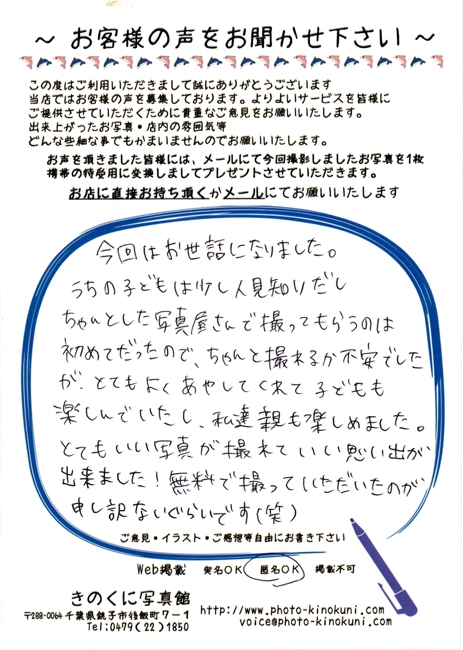 ～ お客様の声をお聞かせ下さい ～
この度はご利用いただきまして誠にありがとうございます
当店ではお客様の声を募集しております。よりよいサービスを皆様に
ご提供させていただくために貴重なご意見をお願いいたします。
出来上がったお写真・店内の雰囲気等
どんな些細な事でもかまいませんのでお願いいたします。
お声を頂きました皆様には、メールにて今回撮影しましたお写真を1枚
携帯の待受用に変換しましてプレゼントさせていただきます。
お店に直接お持ち頂くかメールにてお願いいたします
今回はお世話になりました。
うちの子どもは少し人見知りだし
ちゃんとした写真屋さんで撮ってもらうのは
初めてだったので、ちゃんと撮れるか不安でした
が、とてもよくあやしてくれて子どもも
楽しんでいたし、私達親も楽しめました。
とてもいい写真が撮れていい思い出が
出来ました！無料で撮っていただいたのが
申し訳ないぐらいです(笑)
ご意見・イラスト・ご感想等自由にお書き下さい
Web掲載 実名OK 匿名OK 掲載不可
きのくに写真館
〒288-0064 千葉県銚子市後飯町7－1
Tel:0479(22)1850
http://www.photo-kinokuni.com/
voice@photo-kinokuni.com